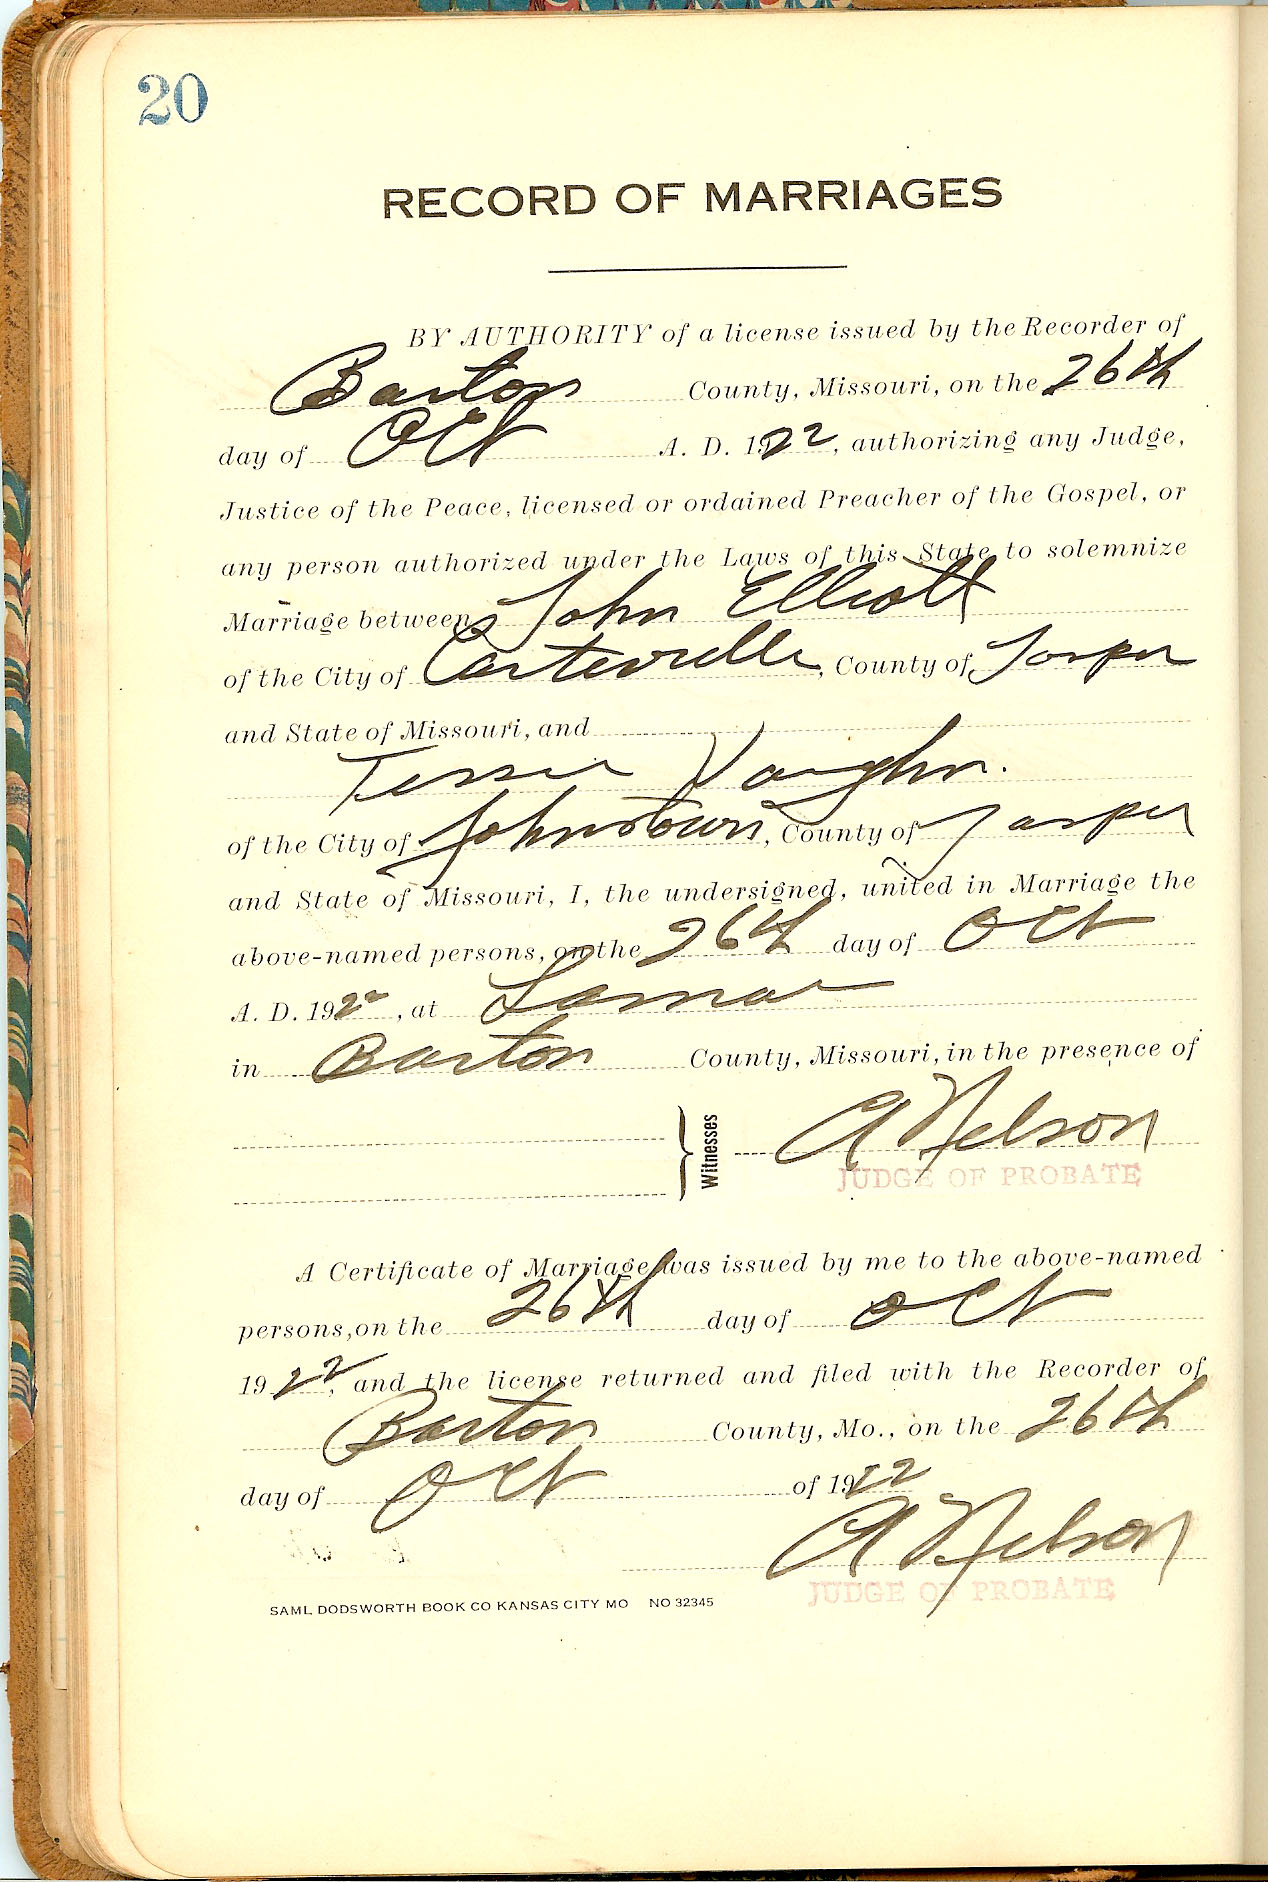 20
RECORD OF MARRIAGES
BY AUTHORITY of a license issued by the Recorder of
Barton County, Missouri, on the 26th
day of Oct A. D. 1922, authorizing any Judge,
Justice of the Peace, licensed or ordained Preacher of the Gospel, or
any person authorized under the Laws of this State to solemnize
Marriage between John Elliott
of the City of Carterville, County of Jasper
and State of Missouri, and
Tessie Vaughn.
of the City of Johnstown, County of Jasper
and State of Missouri, I, the undersigned, united in Marriage the
above-named persons, on the 26th day of Oct
A. D. 1922, at Lamar
in Barton County, Missouri, in the presence of
Witnesses A Nelson
JUDGE OF PROBATE
A Certificate of Marriage was issued by me to the above-named
persons, on the 26th day of Oct
1922, and the license returned and filed with the Recorder of
Barton County, Mo., on the 26th
day of Oct of 1922
A Nelson
JUDGE OF PROBATE
SAML DODSWORTH BOOK CO KANSAS CITY MO NO 32345